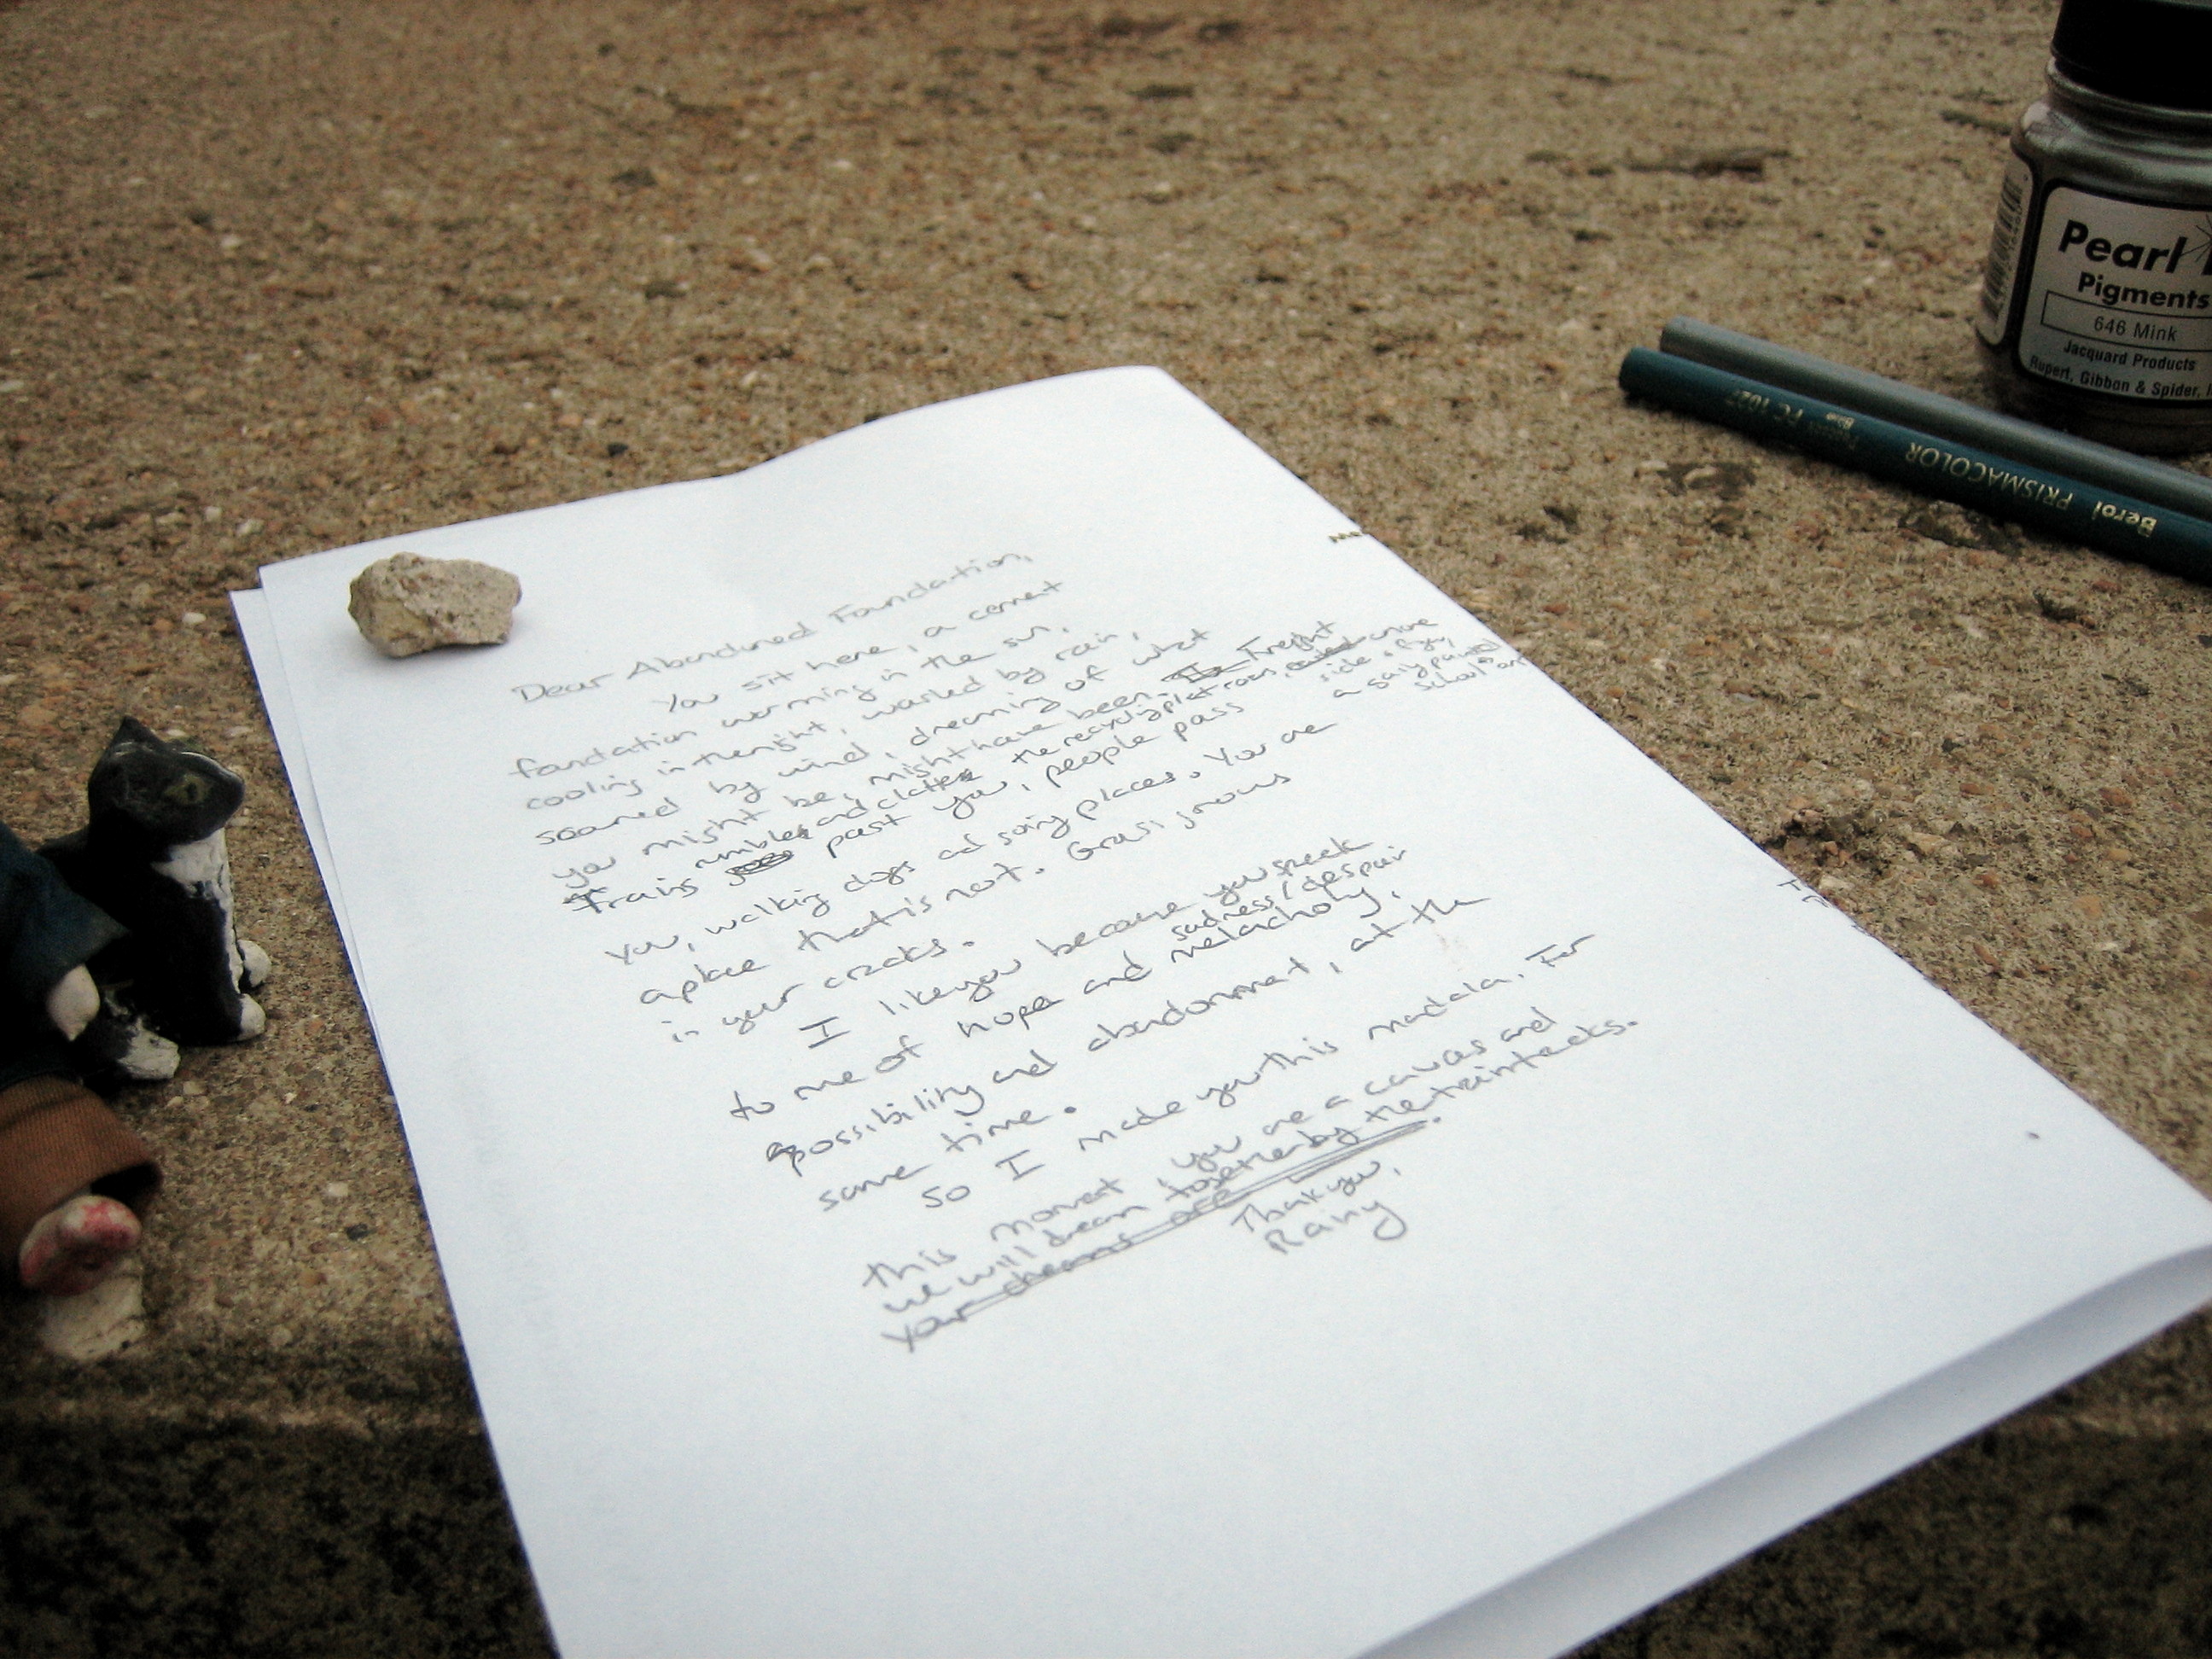 Dear Abandoned Foundation,
You sit here, a cement
foundation warming in the sun,
cooling in the night, washed by rain,
seared by wind, dreaming of what
you might be, might have been. Freight
Trains rumble and clatter past you, people pass
the recycling plant roars, on one
side of you,
a gaily painted
school on
you, walking dogs and going places. You are
a place that is not. Grass grows
in your cracks.
I like you because you speak
to me of hope and melancholy,
sadness/despair
possibility and abandonment, at the
same time.
So I made you this madala. For
this moment you are a canvas and
we will dream together by the train tracks.
your dreams are
Thank you,
Rainy
Pearl
Pigments
646 Mink
Jacquard Products
Rupert, Gibbon & Spider,
Berol PRISMACOLOR PC 1027